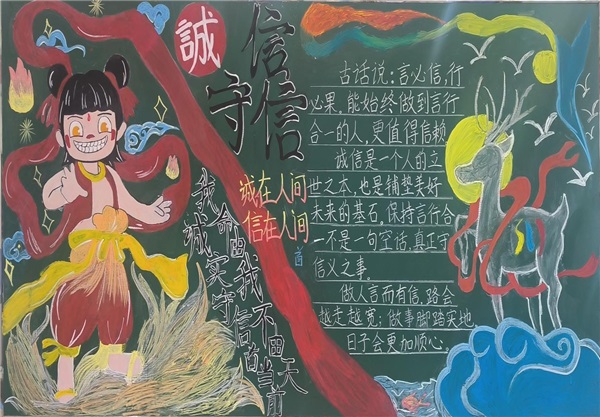 誠信
守信
诚在人间
信在人间
我命由我不由天
诚实守信首当前
古话说：言必信，行
必果，能始终做到言行
合一的人，更值得信赖
诚信是一个人的立
世之本，也是铺垫美好
未来的基石，保持言行合
一不是一句空话，真正守
信义之事。
做人言而有信，路会
越走越宽；做事脚踏实地，
日子会更加顺心。